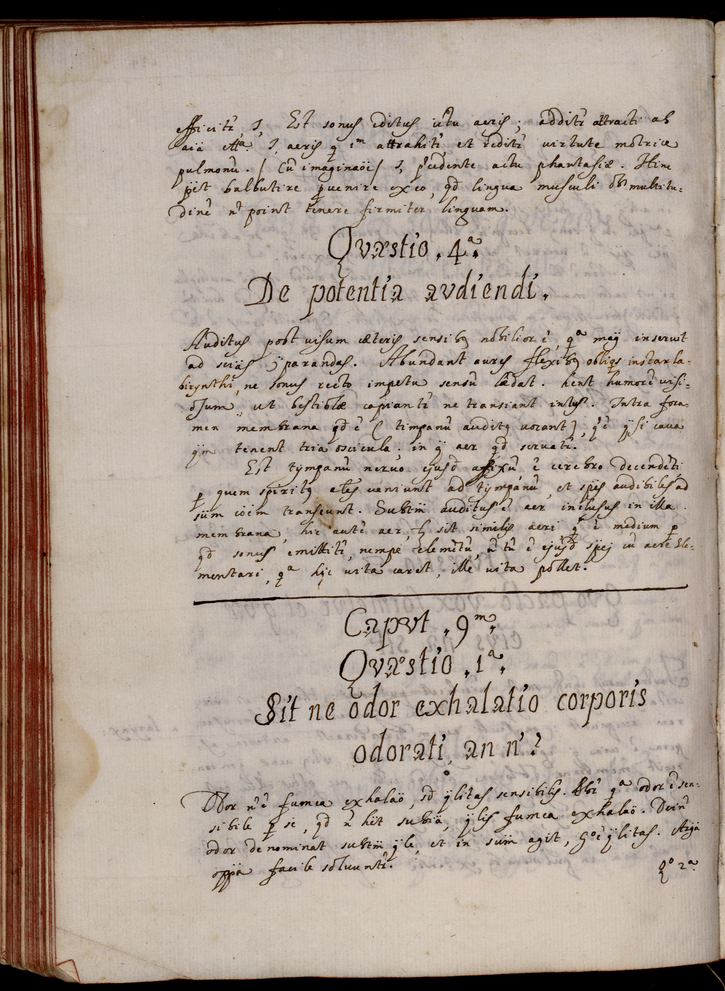 efficitr, I, Est sonus editus ictu aeris; additr attracti ab
aia etta I, aeris q in attrahitr et redditr virtute motricæ
pulmonū. / Cū imaginaōe / I, p̄cedente actu phantasiæ. Hinc
p̄t balbutire p̱venire ex eo, qd lingua musculi ob multitu-
dinē nō point tenere firmiter linguam.
Qvæstio .4ª.
De potentia avdiendi.
Auditus post visum cæteris sensibq nobilior ē, qª magis inservit
ad sciis parandas. Abundant aures flexibq obliqs instar la-
birynthi, ne sonus recto impetu sensū lædat. hent humorē visi-
osum, ut bestiolæ capiantr ne transiant intus. Intra fora-
men membrana qd ē (timpanū auditq vocant), qe ipsi cava
qm tenent tria oscicula; in q aer qd servatr.
Est tympanū nervo ejusd affixū ē cerebro decendēti
p̱ quem spiritq ales veniunt ad tympanū, et spes audibiles ad
sūm cōem transeunt. Subtm auditus ē aer inclusus in illa
membrana, hic autē aer, lꝫ sit similis aeri qi ē medium p̱
qd sonus emittitr, nempe elemētū, n̄ tn ē ejusd spej cū aere Ele-
mentari, qª hic vita caret, ille vita pollet.
Capvt .9m.
Qvæstio .1ª.
Sit ne odor exhalatio corporis
odorati, an n'?
Odor n' ē fumea exhalaō, sd qlitas sensibilis. Pbr qª odor ē sen-
sibile p̱ se, qd n̄ hēt subia, qlis fumea exhalaō. Dein
odor denominat subtm qle, et in sūm agit, go ē qlitas. Arga
oppta facile solvuntr.
Qo 2ª.